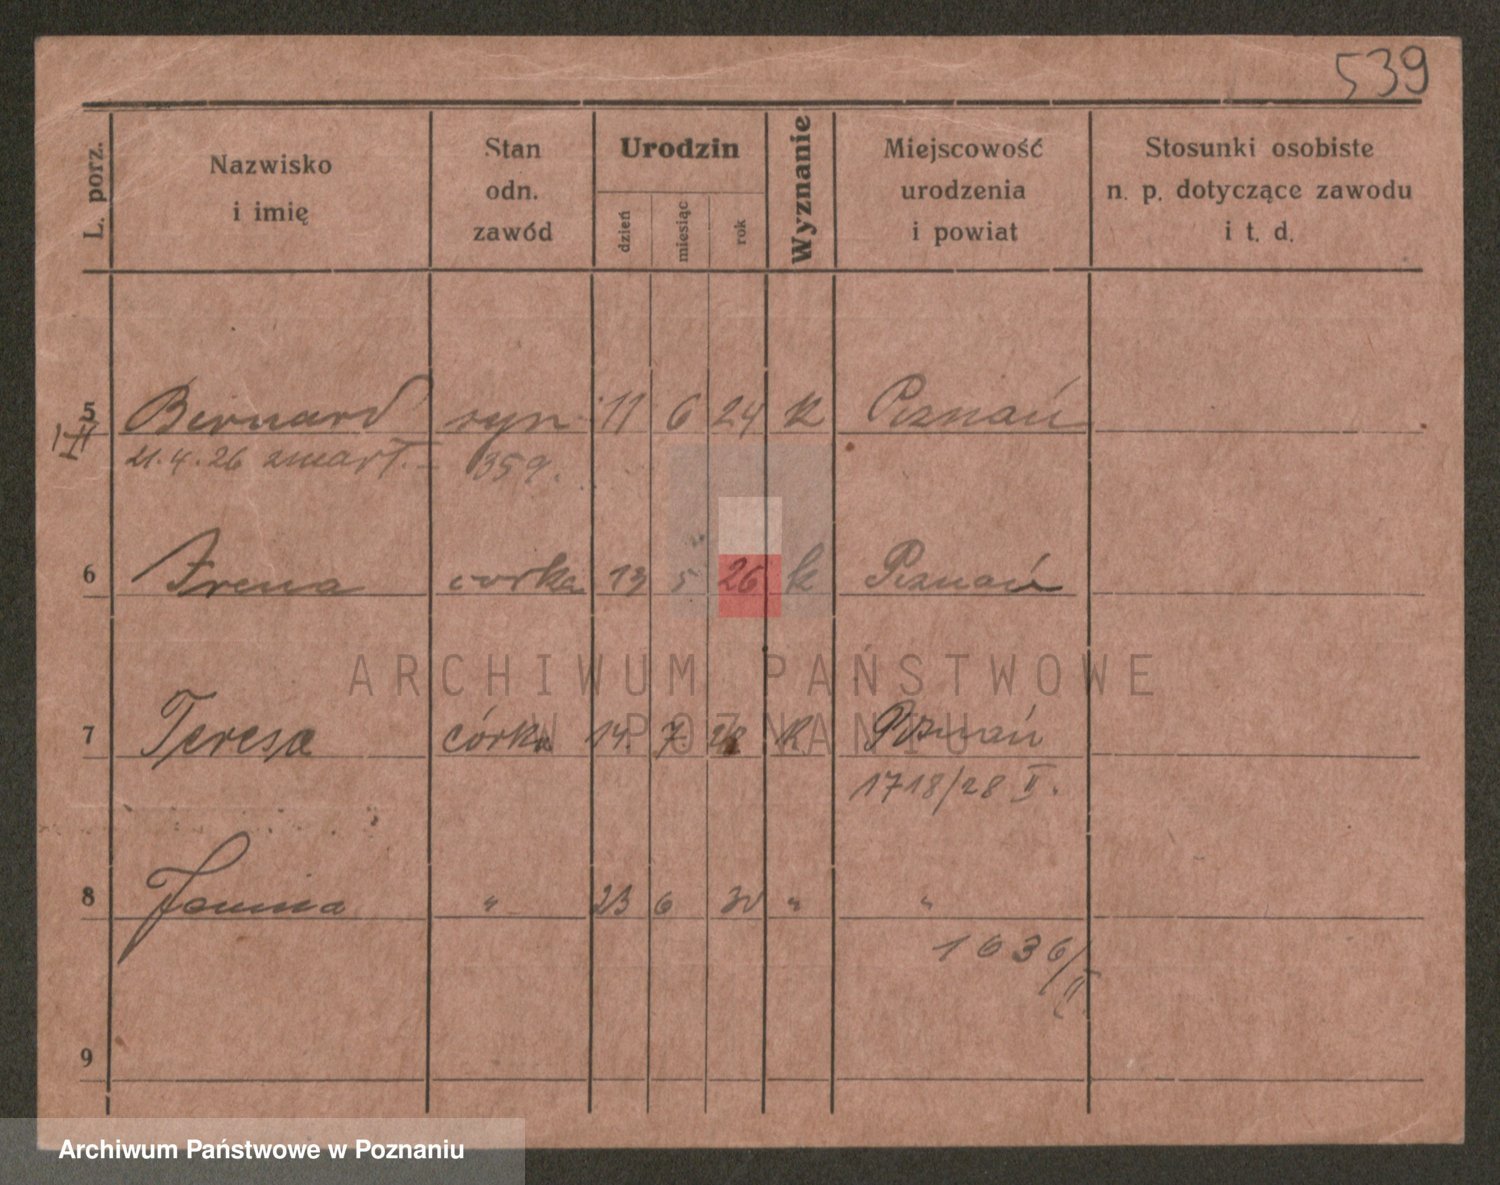 539
L. porz.
Nazwisko i imię
Stan odn. zawód
Urodzin
dzień
miesiąc
rok
Wyznanie
Miejscowość urodzenia i powiat
Stosunki osobiste n. p. dotyczące zawodu i t. d.
5 Bernard syn 11 6 24 k Poznań
21.4.26 zmarł. 359.
6 Irena corka 13 5 26 k Poznań
ARCHIWUM PAŃSTWOWE
W POZNANIU
7 Teresa córka 14. 7. 28 k Poznań
1718/28 II.
8 Janina " 23 6 30 " "
1636/II.
9
Archiwum Państwowe w Poznaniu